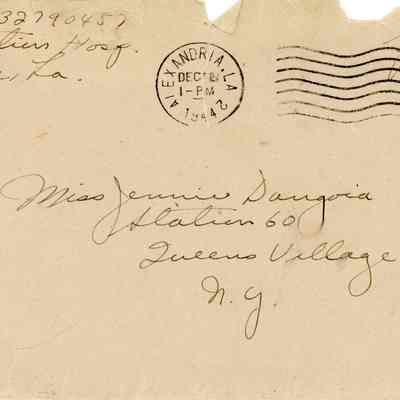 32790457
Hosp.
La.
ALEXANDRIA, LA.
DEC
1-PM
1942
Miss Jennie Dangoia
Station 60
Queens Village
N.Y.